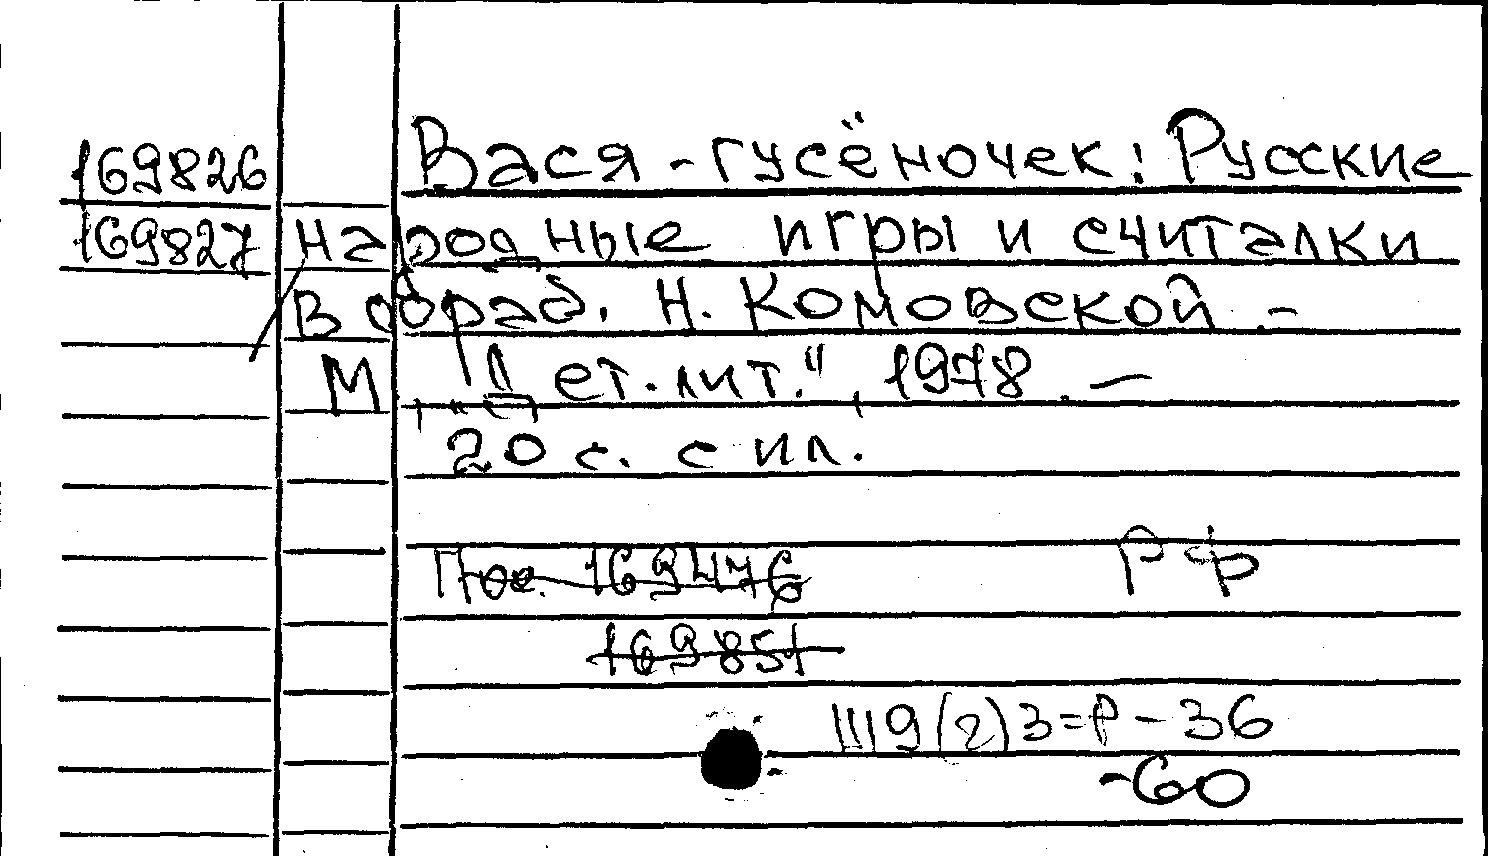 169826 Вася-гусёночек: Русские
169827 народные игры и считалки
в обраб. Н. Комовской. -
М., „Дет. лит.", 1978. —
20 с. с ил.
Пос. 169476 РФ
169851
Ш9(2)3=Р-36
-60